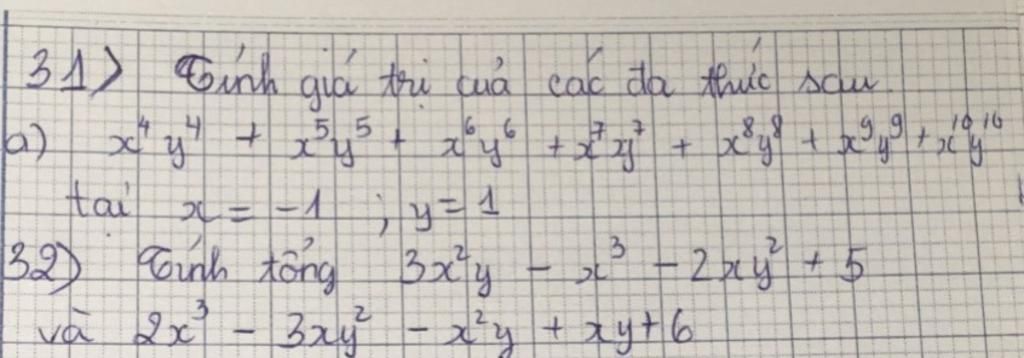 31) Tính giá trị của các đa thức sau
a) x⁴y⁴ + x⁵y⁵ + x⁶y⁶ + x⁷y⁷ + x⁸y⁸ + x⁹y⁹ + x¹⁰y¹⁰
tại x = -1 ; y = 1
32) Tính tổng 3x²y - x³ - 2xy² + 5
và 2x³ - 3xy² - x²y + xy + 6